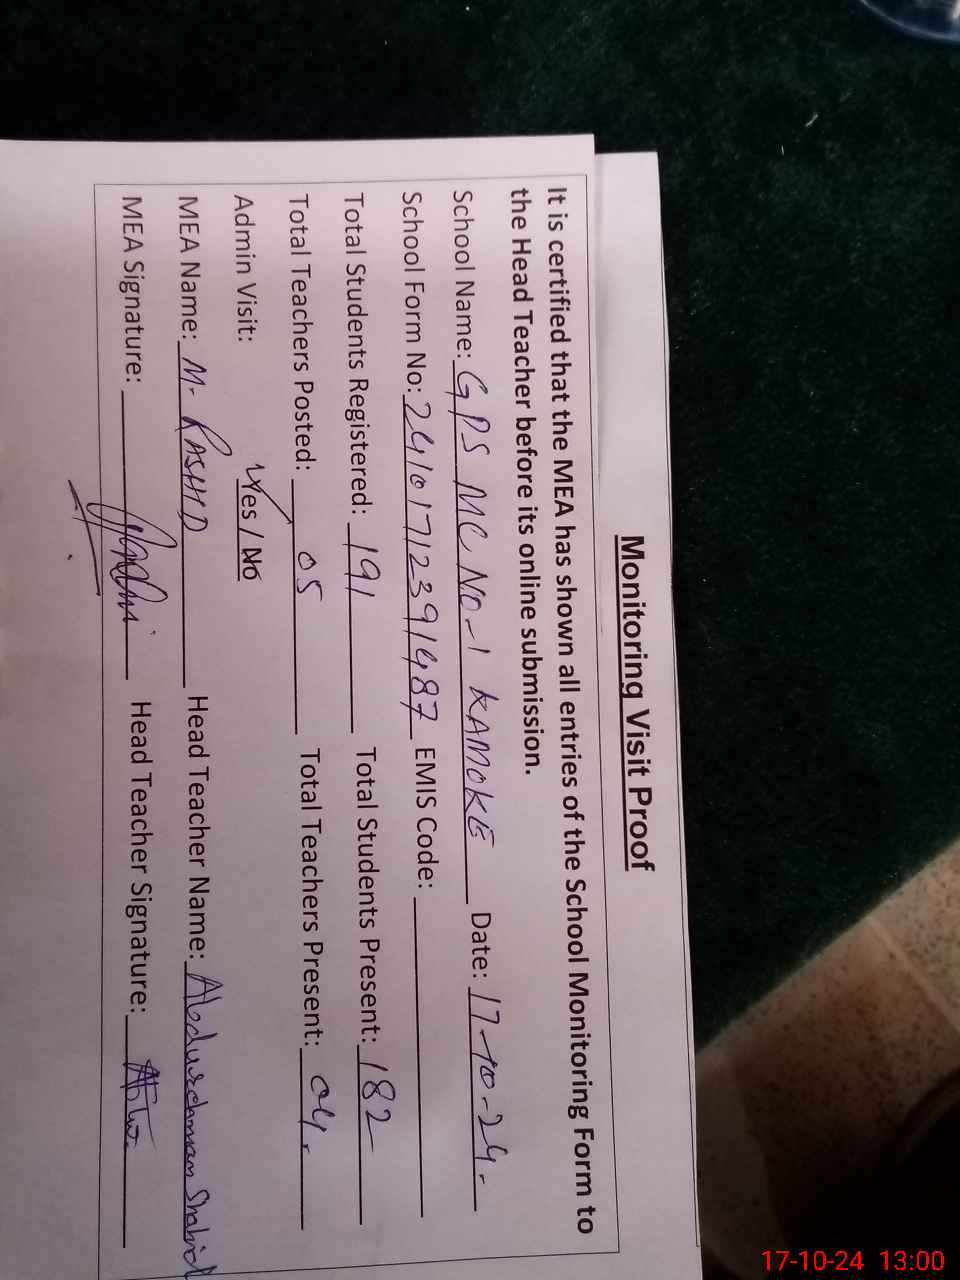 Monitoring Visit Proof
It is certified that the MEA has shown all entries of the School Monitoring Form to
the Head Teacher before its online submission.
School Name: GPS MC NO-1 KAMOKE Date: 17-10-24.
School Form No: 24101712391487 EMIS Code:
Total Students Registered: 191 Total Students Present: 182
Total Teachers Posted: 05 Total Teachers Present: 04.
Admin Visit: Yes / No
MEA Name: M. RASHID Head Teacher Name: Abdurehman Shahid
MEA Signature: Head Teacher Signature:
17-10-24 13:00